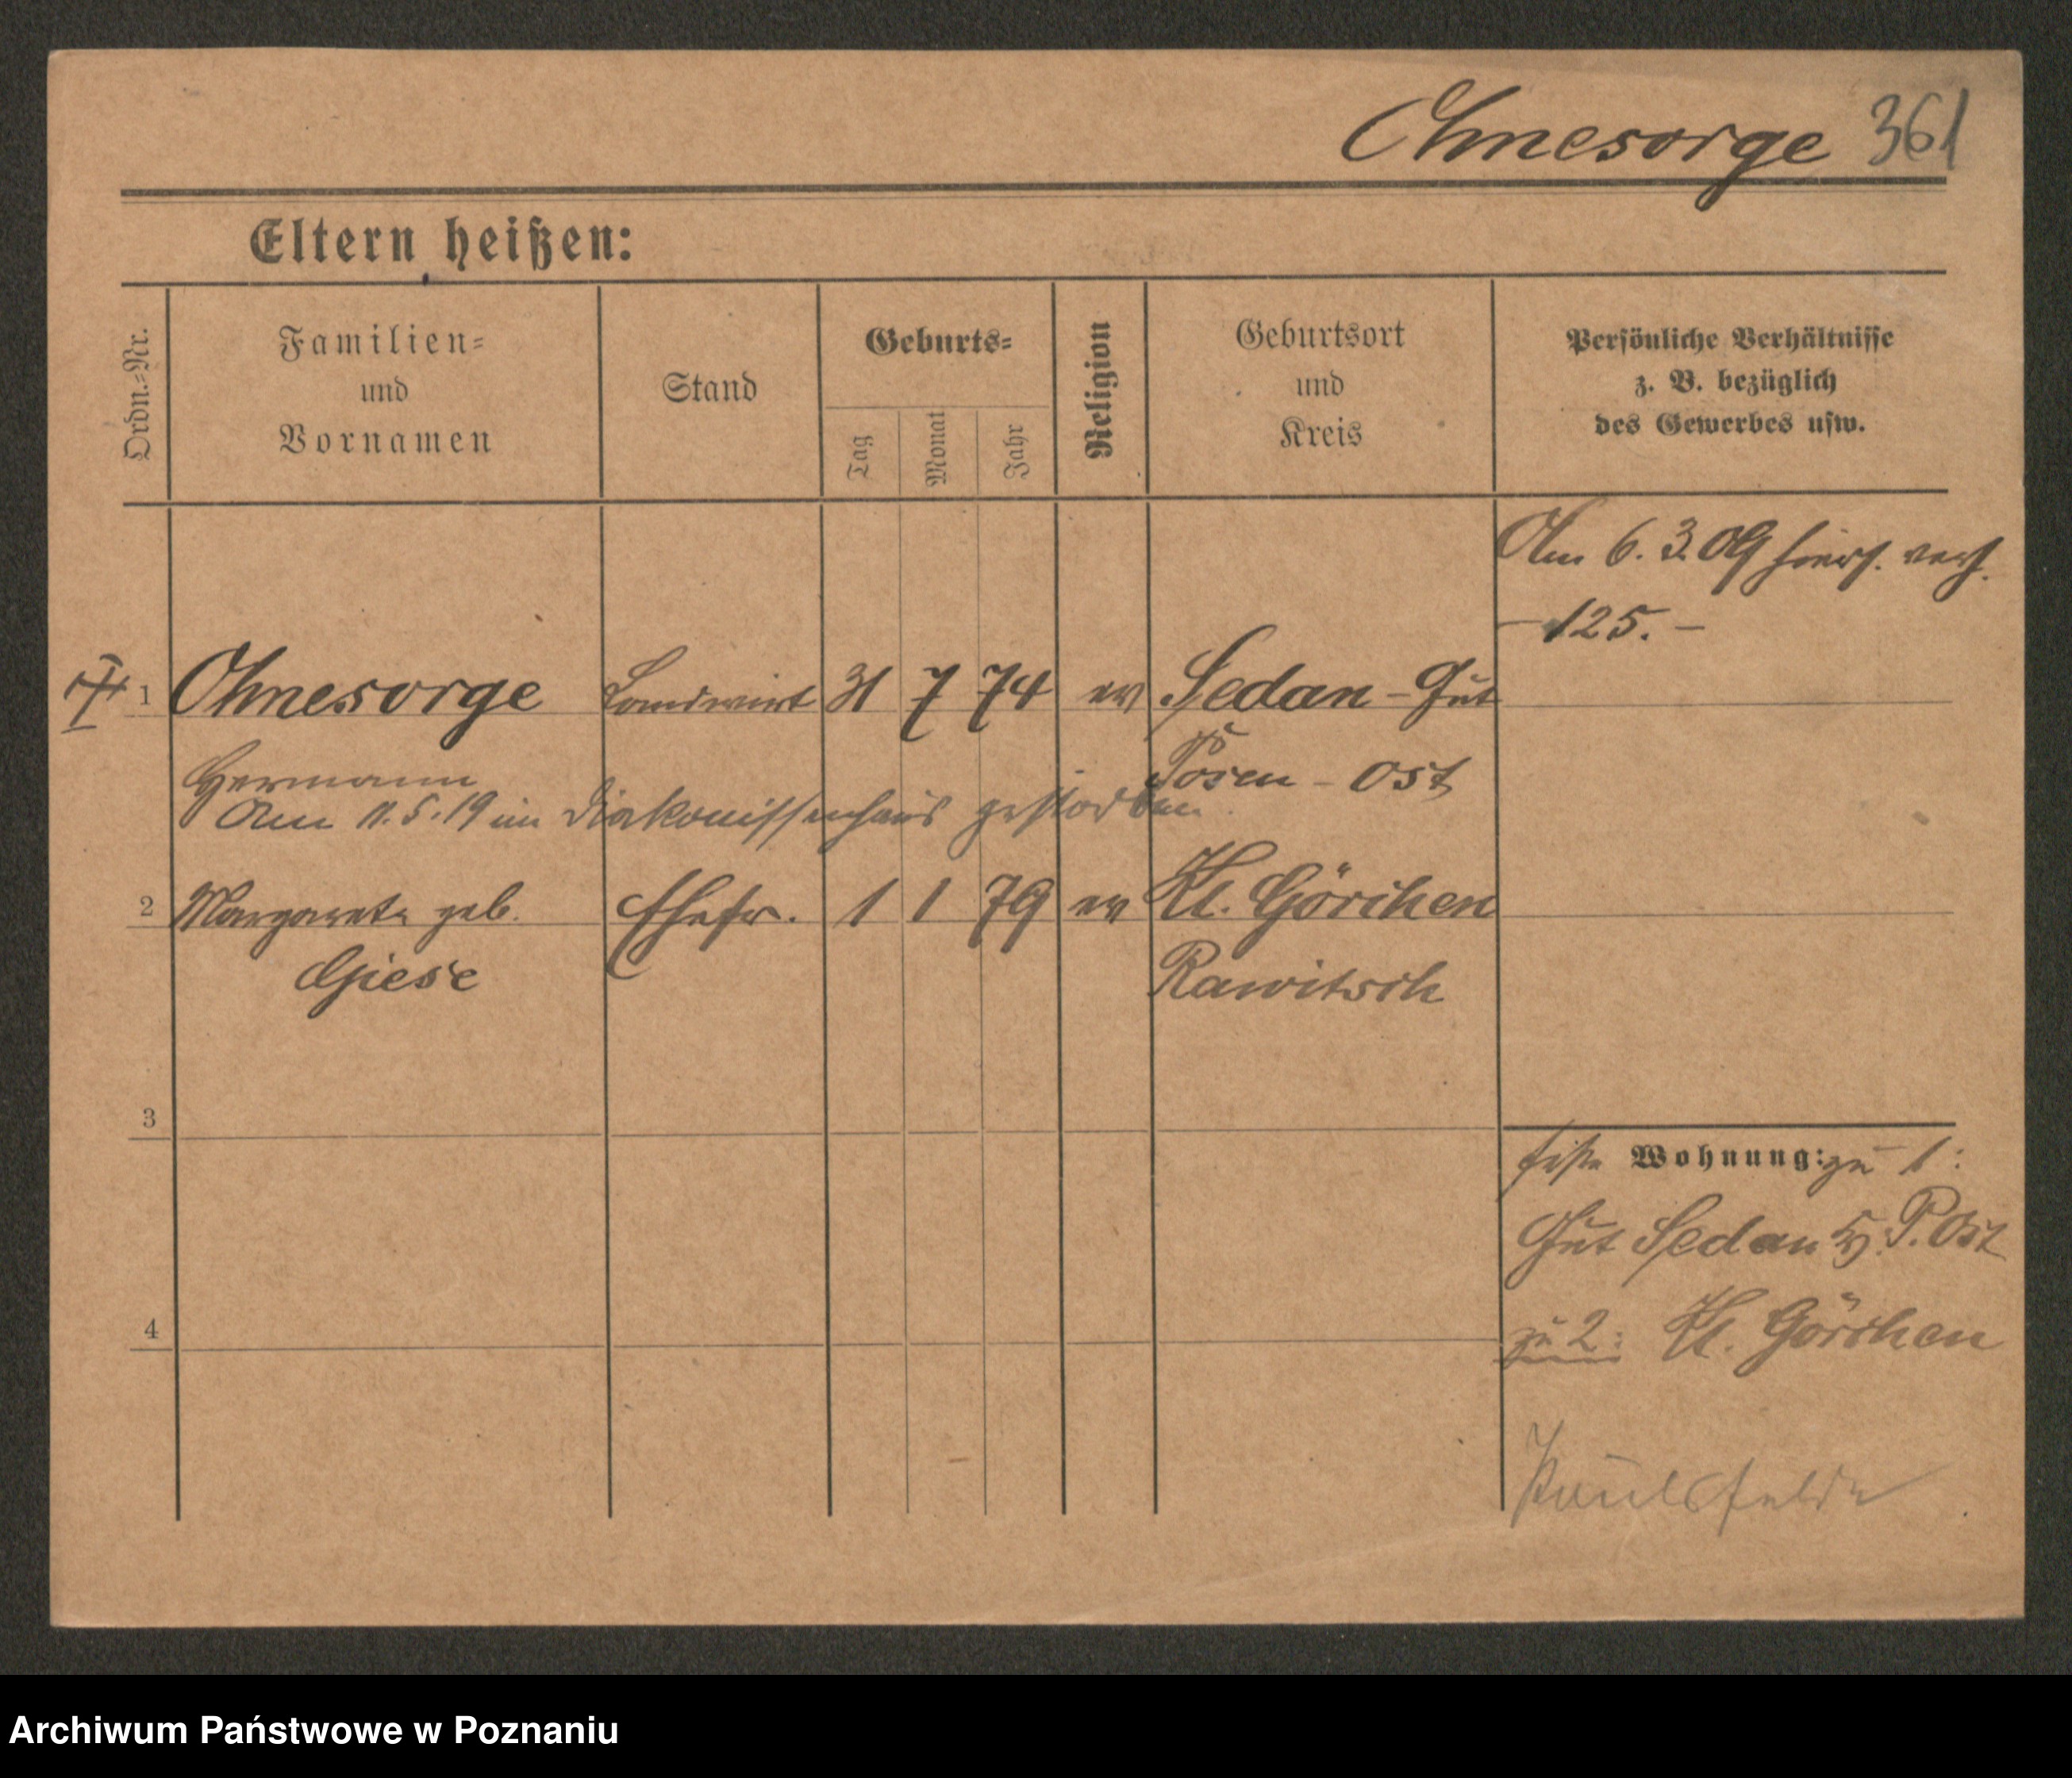 Ohnesorge 361
Eltern heißen:
Ordn.=Nr.
Familien=
und
Vornamen
Stand
Geburts=
Tag
Monat
Jahr
Religion
Geburtsort
und
Kreis
Persönliche Verhältnisse
z. B. bezüglich
des Gewerbes usw.
Am 6. 3. 09 hiers. verh.
– 125. –
1 Ohnesorge Landwirt 31 7 74 ev Sedan - Gut
Hermann Posen - Ost
Am 11.5.19 im Diakonissenhaus gestorben
2 Margarete geb. Ehefr. 1 1 79 ev Kl. Görchen
Giese Rawitsch
3
Wohnung: zu 1:
Gut Sedan P. Ost
4
zu 2: Kl. Görchen
Paulsfelde
Archiwum Państwowe w Poznaniu